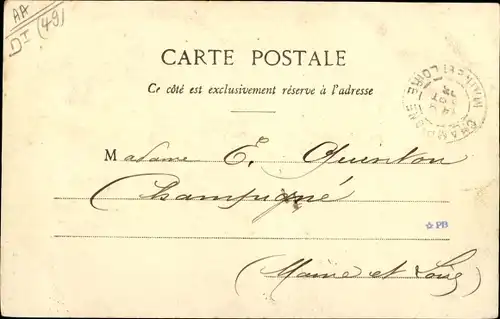 AA
DI (49)
CARTE POSTALE
Ce côté est exclusivement réservé à l'adresse
CHAMPIGNÉ
MAINE-ET-LOIRE
Madame E. Quinton
Champigné
☆ PB
(Maine et Loire)